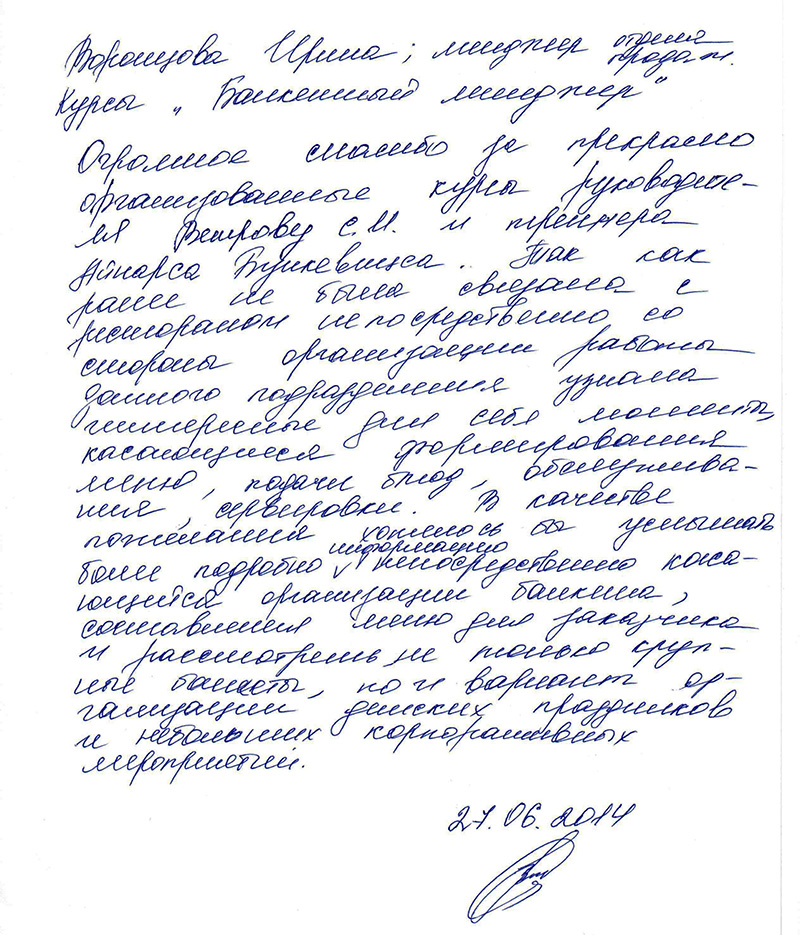 Воронцова Ирина; менеджер отдела продаж.
Курсы „Банкетный менеджер“
Огромное спасибо за прекрасно
организованные курсы руководите-
ля Ветрову С.И. и тренера
Айнарса Бункевицса. Так как
ранее не была связана с
рестораном непосредственно со
стороны организации работы
данного подразделения узнала
интересные для себя моменты,
касающиеся формирования
меню, подачи блюд, обслужива-
ния, сервировки. В качестве
пожелания хотелось бы услышать
более подробно информацию непосредственно каса-
ющейся организации банкета,
составления меню для заказчика
и рассмотреть не только круп-
ные банкеты, но и вариант ор-
ганизации детских праздников
и небольших корпоративных
мероприятий.
27.06.2014